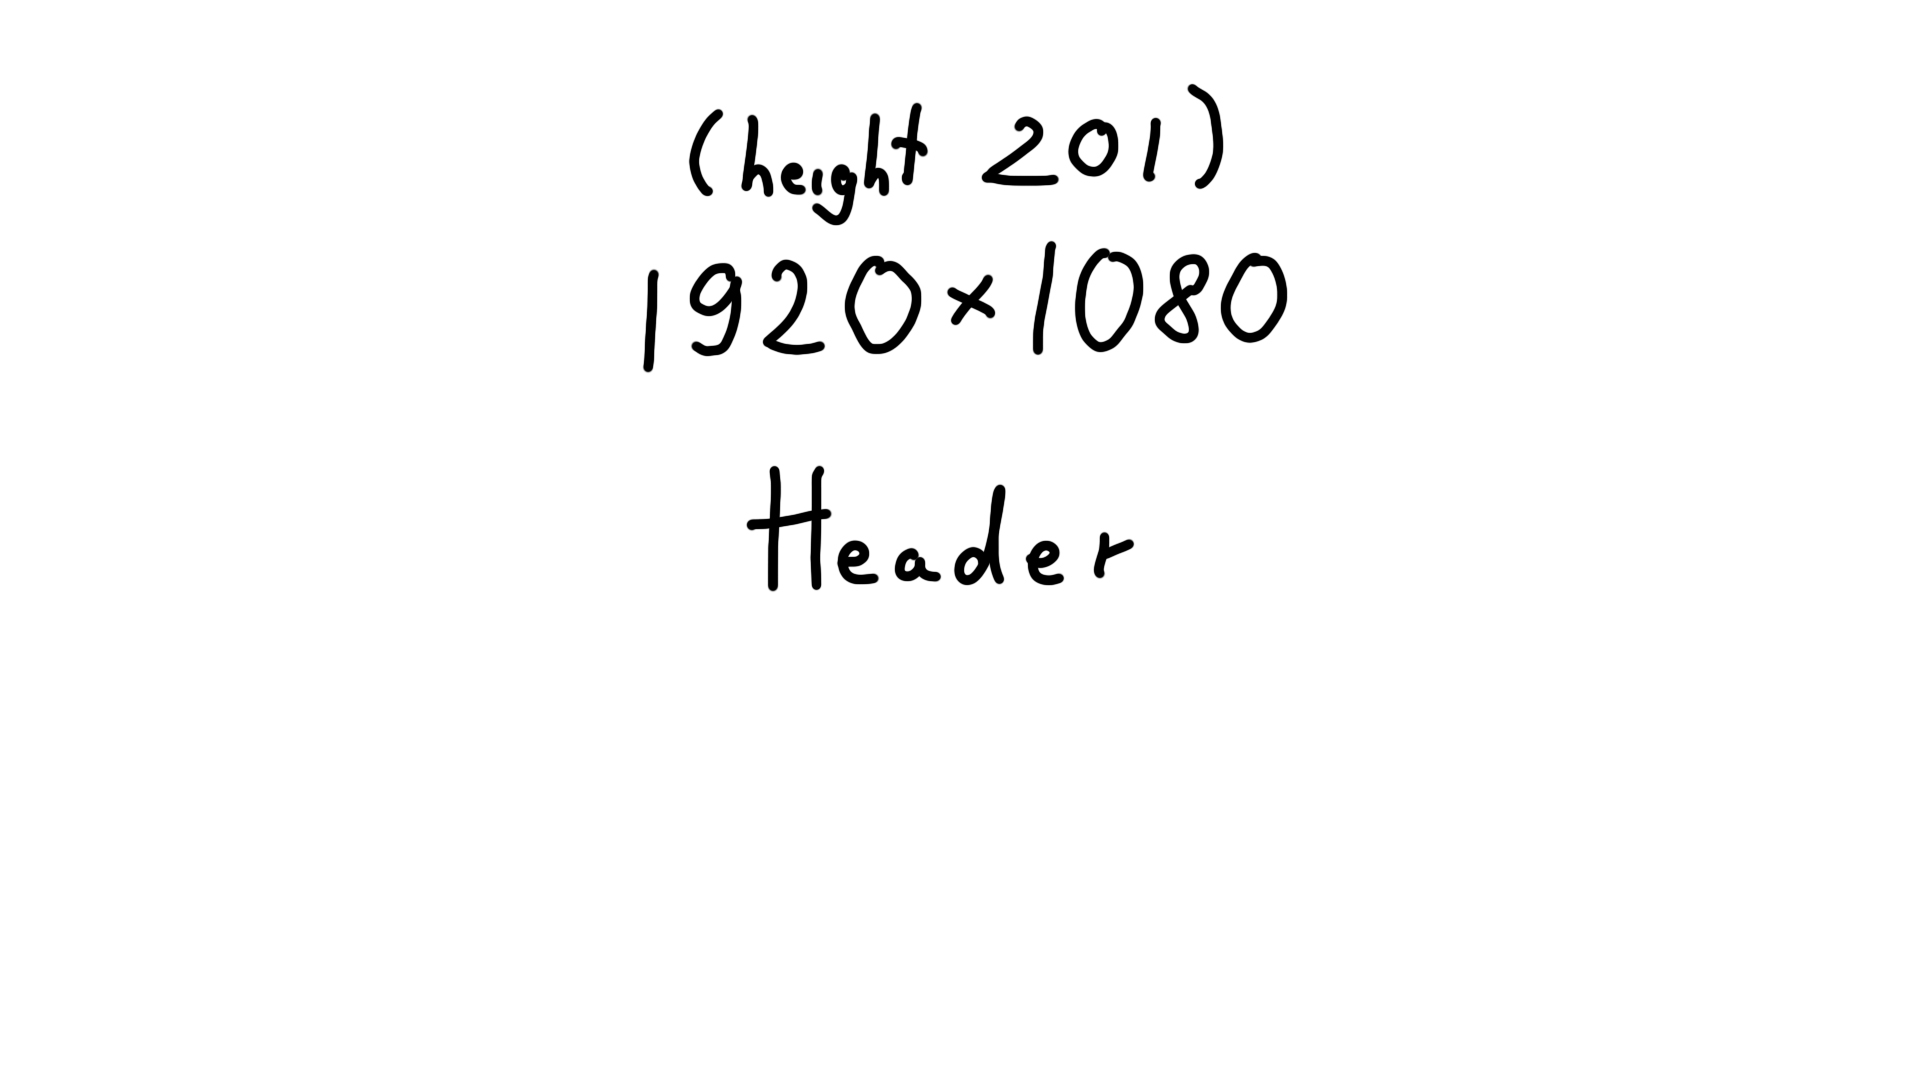 (height 201)
1920×1080
Header